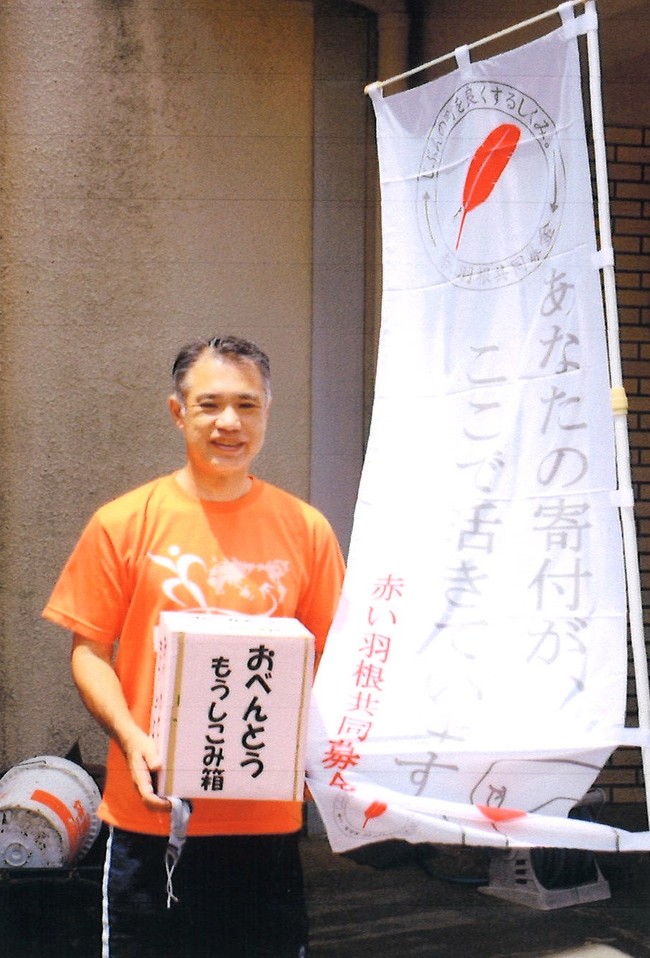 じぶんの町を良くするしくみ。
羽根共同募金
あなたの寄付が、
ここで活きています
赤い羽根共同募金
おべんとう
もうしこみ箱